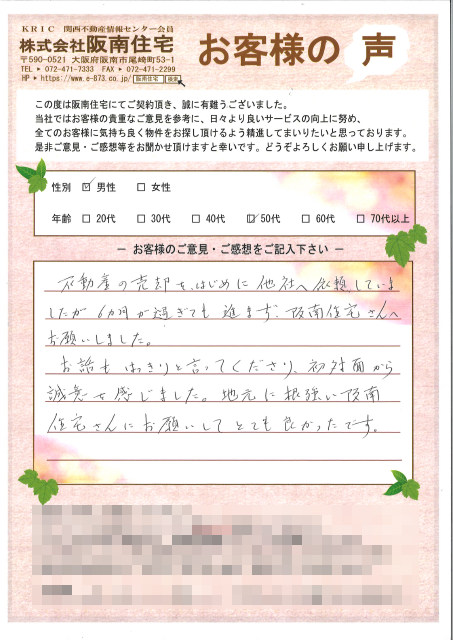 KRIC 関西不動産情報センター会員
株式会社阪南住宅
〒590-0521 大阪府阪南市尾崎町53-1
TEL ▶ 072-471-7333 FAX ▶ 072-471-2299
HP ▶ https://www.e-873.co.jp/ 阪南住宅 検索
お客様の 声
この度は阪南住宅にてご契約頂き、誠に有難うございました。
当社ではお客様の貴重なご意見を参考に、日々より良いサービスの向上に努め、
全てのお客様に気持ち良く物件をお探し頂けるよう精進してまいりたいと思っております。
是非ご意見・ご感想等をお聞かせ頂けますと幸いです。どうぞよろしくお願い申し上げます。
性別 ☑ 男性 □ 女性
年齢 □ 20代 □ 30代 □ 40代 ☑ 50代 □ 60代 □ 70代以上
－ お客様のご意見・ご感想をご記入下さい －
不動産の売却を、はじめに他社へ依頼していま
したが6カ月が過ぎても進まず、阪南住宅さんへ
お願いしました。
お話もはっきりと言ってくださり、初対面から
誠意を感じました。地元に根強い阪南
住宅さんにお願いしてとても良かったです。